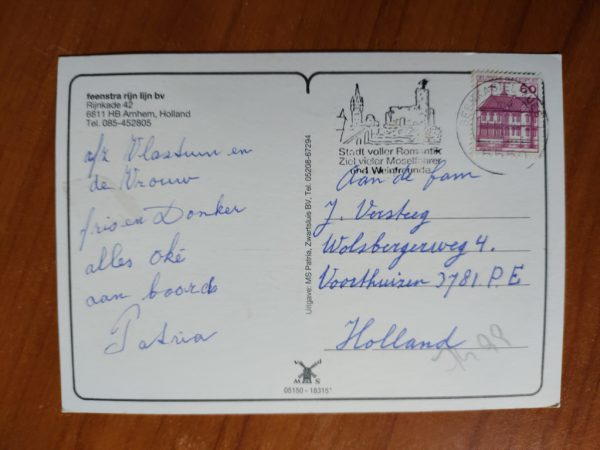 feenstra rijn lijn bv
Rijnkade 42
6811 HB Arnhem, Holland
Tel. 085-452805
afz Vlastuin en
de Vrouw
fris en Donker
alles oké
aan boord
Patria
Uitgave: MS Patria, Zwartsluis BV, Tel. 05208-67294
Stadt voller Romantik
Ziel vieler Moselfahrer
und Weinfreunde
60
Aan de fam
J. Versteeg
Wolsbergerweg 4.
Voorthuizen 3781 P E
Holland
M S
05150 - 18315*